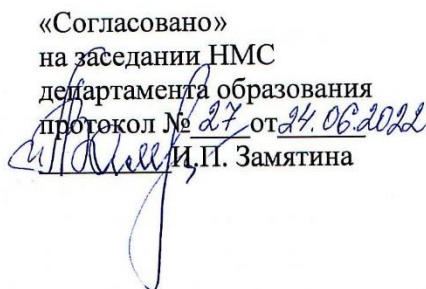 «Согласовано»
на заседании НМС
департамента образования
протокол № 27 от 24.06.2022
И.П. Замятина